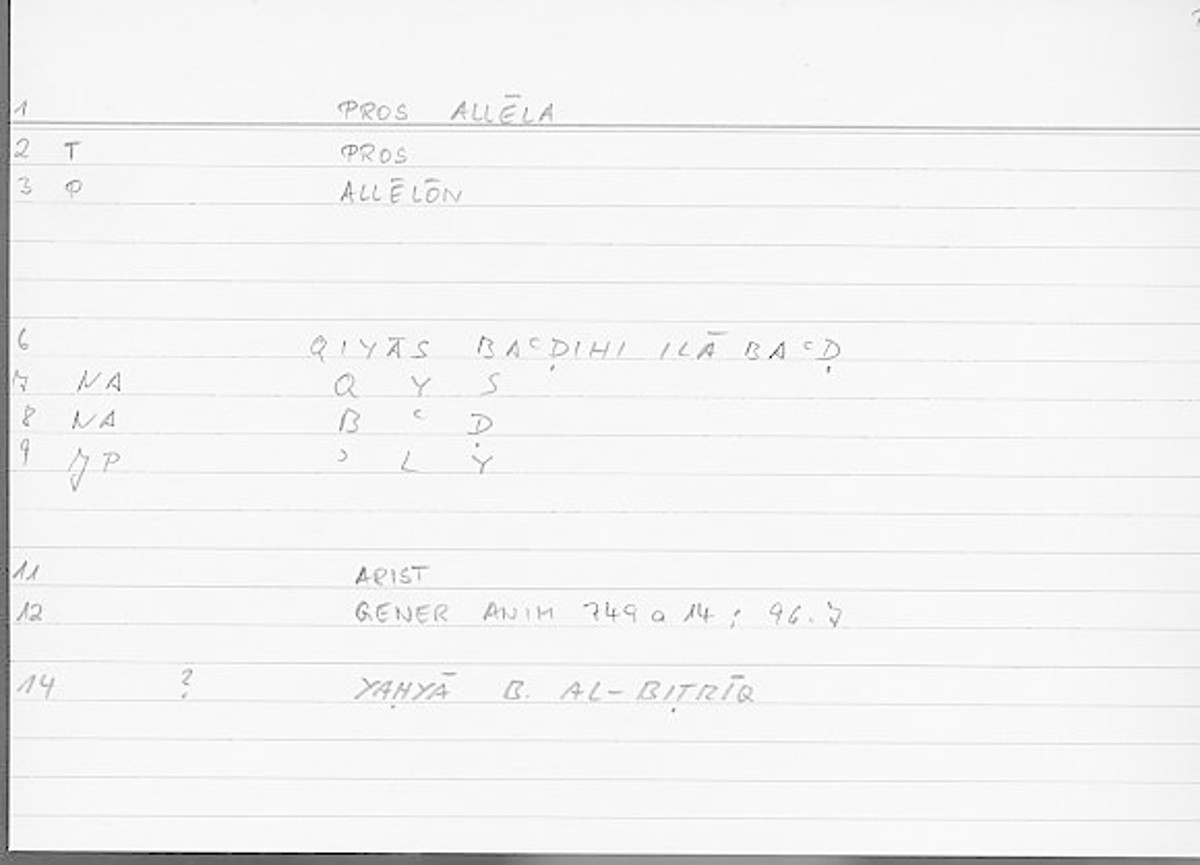 1 PROS ALLĒLA
2 T PROS
3 P ALLĒLŌN
6 QIYĀS BAʿḌIHI ILĀ BAʿḌ
7 NA Q Y S
8 NA B ʿ Ḍ
9 JP ʾ L Y
11 ARIST
12 GENER ANIM 749 a 14 ; 96.7
14 ? YAḤYĀ B. AL-BIṬRĪQ